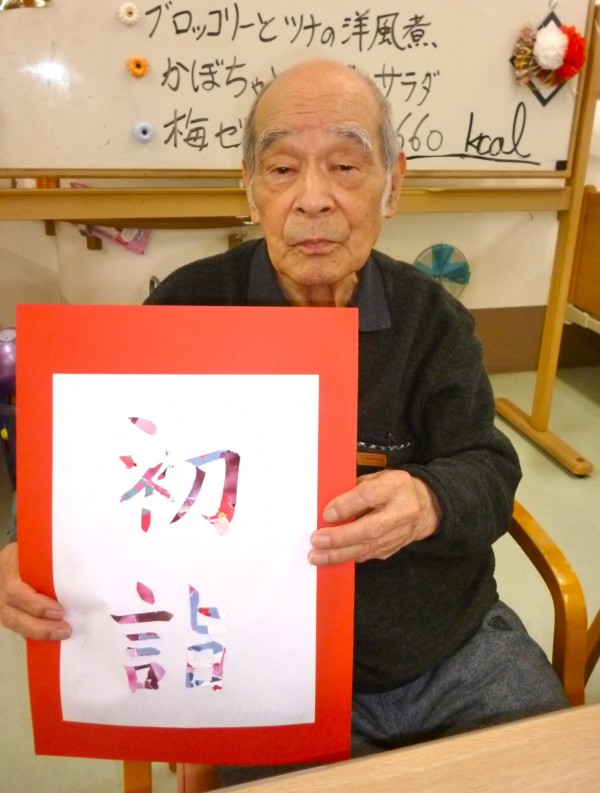 ブロッコリーとツナの洋風煮
かぼちゃ サラダ
梅ゼ 660 kcal
初
詣